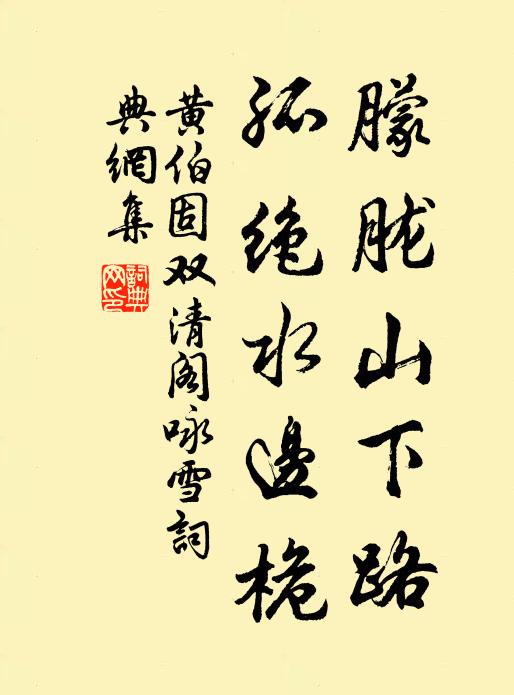 朦胧山下路
孤绝水邊桅
黄伯固双清阁咏雪詞
典網集
詞典
网印